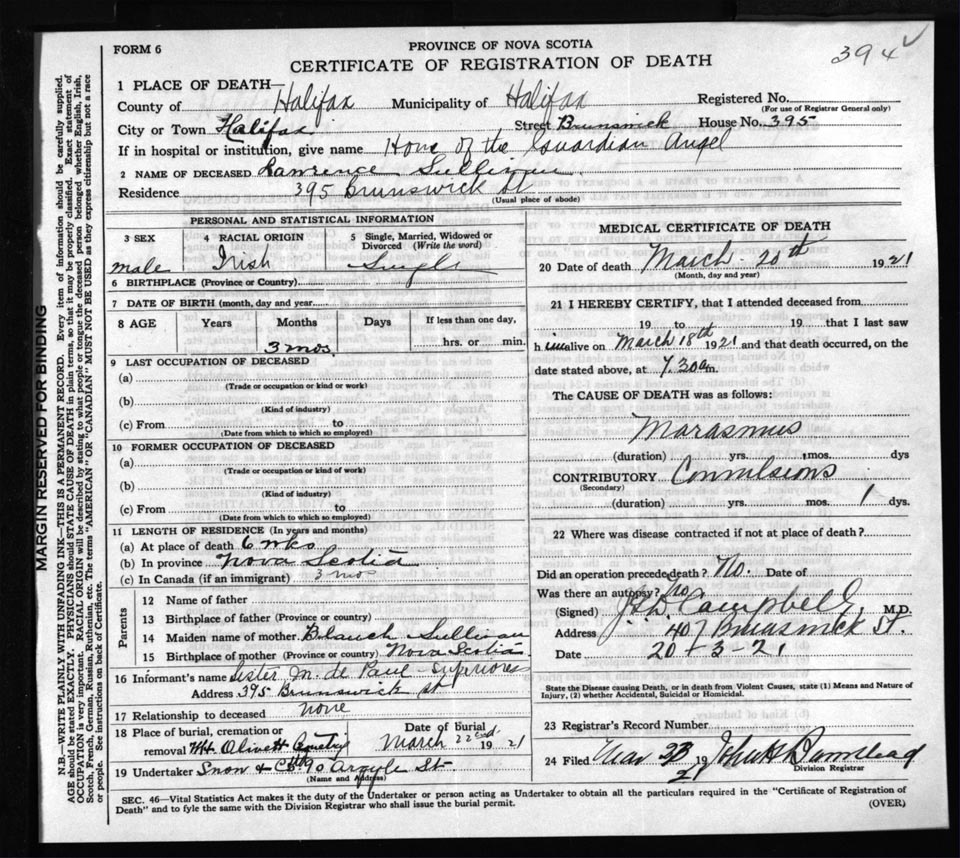 FORM 6
PROVINCE OF NOVA SCOTIA
394
CERTIFICATE OF REGISTRATION OF DEATH
1 PLACE OF DEATH
County of Halifax Municipality of Halifax Registered No.
(For use of Registrar General only)
City or Town Halifax Street Brunswick House No. 395
If in hospital or institution, give name Home of the Guardian Angel
2 NAME OF DECEASED Lawrence Sullivan
Residence 395 Brunswick St
(Usual place of abode)
PERSONAL AND STATISTICAL INFORMATION
3 SEX 4 RACIAL ORIGIN 5 Single, Married, Widowed or Divorced (Write the word)
male Irish Single
6 BIRTHPLACE (Province or Country)
7 DATE OF BIRTH (month, day and year)
8 AGE Years Months Days If less than one day,
3 mos. hrs. or min.
9 LAST OCCUPATION OF DECEASED
(a)
(Trade or occupation or kind of work)
(b)
(Kind of industry)
(c) From to
(Date from which to which so employed)
10 FORMER OCCUPATION OF DECEASED
(a)
(Trade or occupation or kind of work)
(b)
(Kind of industry)
(c) From to
(Date from which to which so employed)
11 LENGTH OF RESIDENCE (In years and months)
(a) At place of death 6 wks
(b) In province Nova Scotia
(c) In Canada (if an immigrant) 3 mos
Parents
12 Name of father
13 Birthplace of father (Province or country)
14 Maiden name of mother Blanch Sullivan
15 Birthplace of mother (Province or country) Nova Scotia
16 Informant's name Sister M. de Paul Superioress
Address 395 Brunswick St
17 Relationship to deceased none
18 Place of burial, cremation or Date of burial
removal Mt. Olivett March 22nd 1921
19 Undertaker Snow & Co 90 Argyle St.
(Name and Address)
MEDICAL CERTIFICATE OF DEATH
20 Date of death March 20th 1921
(Month, day and year)
21 I HEREBY CERTIFY, that I attended deceased from
19 to 19 that I last saw
h im alive on March 18th 1921 and that death occurred, on the
date stated above, at 7.30 a m.
The CAUSE OF DEATH was as follows:
Marasmus
(duration) yrs. mos. dys
CONTRIBUTORY Convulsions
(Secondary)
(duration) yrs. mos. 1 dys.
22 Where was disease contracted if not at place of death?
Did an operation precede death? No. Date of
Was there an autopsy? No
(Signed) Campbell, M.D.
Address 407 Brunswick St.
Date 20-3-21
State the Disease causing Death, or in death from Violent Causes, state (1) Means and Nature of
Injury, (2) whether Accidental, Suicidal or Homicidal.
23 Registrar's Record Number
24 Filed Mar 23 1921
Division Registrar
SEC. 46—Vital Statistics Act makes it the duty of the Undertaker or person acting as Undertaker to obtain all the particulars required in the "Certificate of Registration of
Death" and to fyle the same with the Division Registrar who shall issue the burial permit.
(OVER)
MARGIN RESERVED FOR BINDING
N.B.—WRITE PLAINLY WITH UNFADING INK—THIS IS A PERMANENT RECORD. Every item of information should be carefully supplied.
AGE should be stated EXACTLY. PHYSICIANS should STATE CAUSE OF DEATH in plain terms, so that it may be properly classified. Exact statement of
OCCUPATION is very important. RACIAL ORIGIN will be described by stating to what people or tongue the deceased person belonged whether English, Irish,
Scotch, French, German, Russian, Ruthenian, etc. The terms "AMERICAN" OR "CANADIAN" MUST NOT BE USED as they express citizenship but not a race
or people. See instructions on back of Certificate.